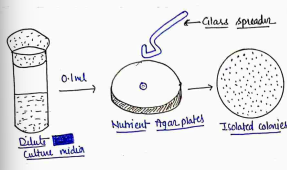 Glass spreader
0.1ml
Nutrient Agar plates
Isolated colonies
Dilute
Culture media